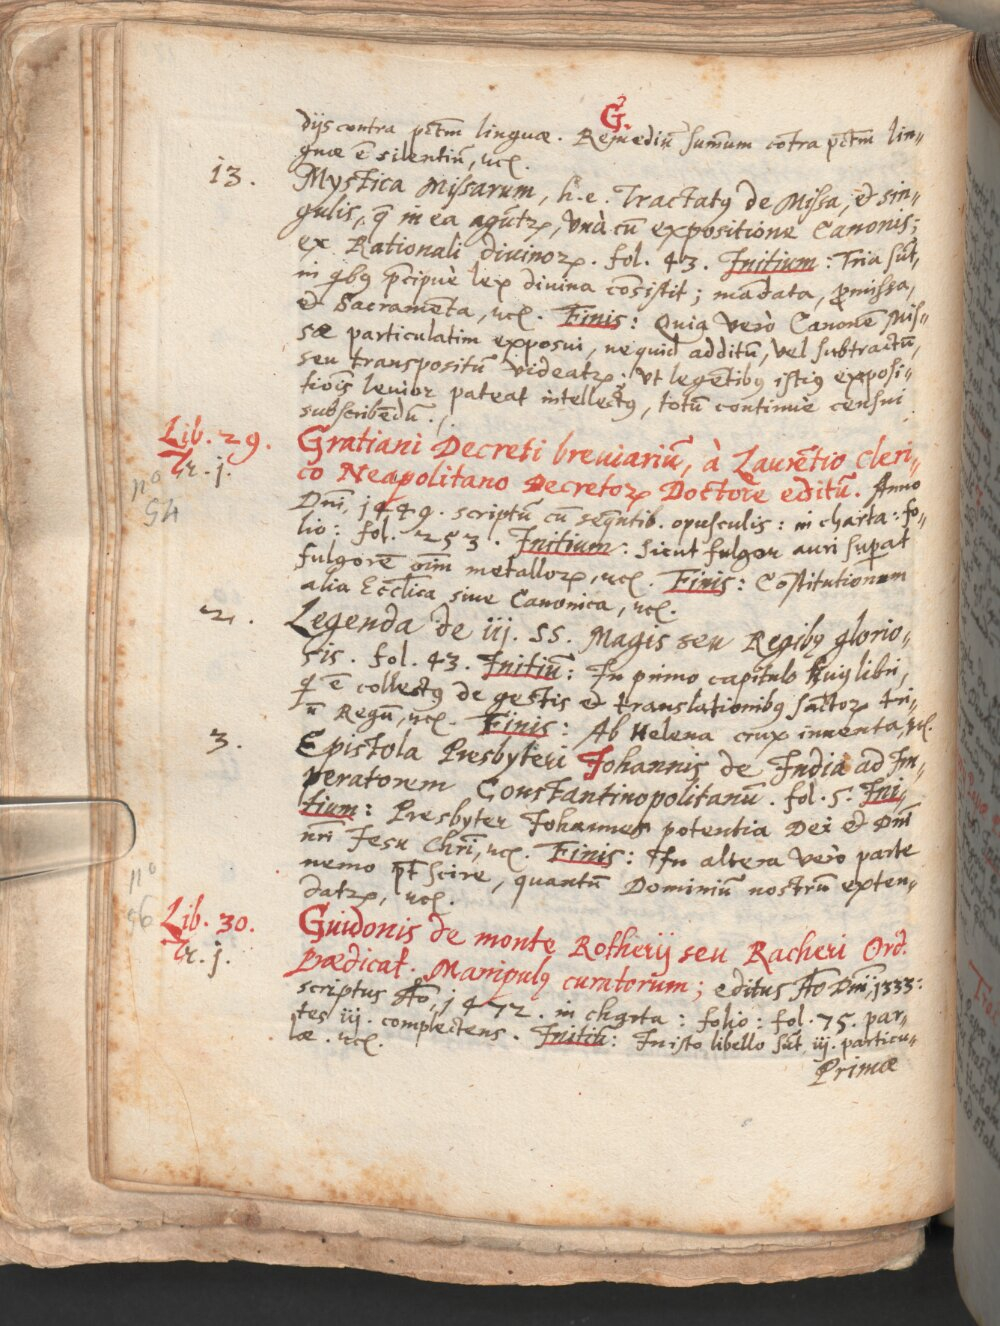 G.
dijs contra pctm linguæ. Remediũ summum cõtra pctm lin„
guæ ẽ silentiũ, ꝛcl.
13. Mystica Missarum, h.e. Tractatꝰ de Missa, et sin„
gulis, q̃ in ea agũtꝛ, Unà cũ expositione Canonis;
ex Rationali diuinoꝝ. fol. 43. Initium: Tria sũt,
in qbꝰ pcipuè lex diuina cõsistit; mãdata, ꝓmissa,
et Sacramẽta, ꝛcl. Finis: Quia verò Canonẽ Mis„
sæ particulatim exposui, nequid additũ, vel subtractũ,
seu transpositũ videatꝛ; Vt legẽtibꝰ istiꝰ exposi„
tiõis leuior pateat intellectꝰ, totũ continuè censui
subscribẽdũ.
Lib. 29. Gratiani Decreti breuiariũ, à Laurẽtio Cleri„
Tr. j. co Neapolitano Decretoꝝ Doctore editũ. Anno
nº 94
Dñi, 1449. scriptũ cũ seqũtib. opusculis: in charta: fo„
lio: fol. 253. Initium: Sicut fulgor auri supat
fulgorẽ oĩm metalloꝝ, ꝛcl. Finis: Cõstitutionum
alia Ecclica siue Canonica, ꝛcl.
2. Legenda de iij. SS. Magis seu Regibꝰ glorio„
sis. fol. 43. Initiũ: In primo capitulo huiꝰ libri,
q ẽ collectꝰ de gestis et translationibꝰ sãctoꝝ tri„
ũ Regũ, ꝛcl. Finis: Ab Helena crux inuenta, ꝛcl.
3. Epistola Presbyteri Johannis de India ad Im„
peratorem Constantinopolitanũ. fol. 5. Ini„
tium: Presbyter Johannes potentia Dei et Dñi
nri Jesu Chri, ꝛcl. Finis: In altera verò parte
nemo pt scire, quantũ Dominiũ nostrũ exten„
datꝛ, ꝛcl.
nº 96
Lib. 30. Guidonis de monte Rotherij seu Racheri Ord.
Tr. j. Prædicat. Manipulꝰ curatorum; editus Aº Dñi, 1333:
scriptus Aº, 1472. in charta: folio: fol. 75. par„
tes iij. complectens. Initiũ: In isto libello sũt iij. particu„
læ. ꝛcl.
Primæ